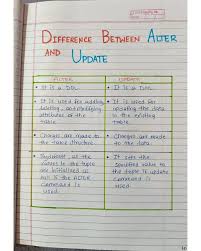 DIFFERENCE BETWEEN ALTER
AND UPDATE
ALTER
UPDATE
• It is a DDL.
• It is used for adding,
deleting, and modifying
attributes of the
table.
• Changes are made to
the table structure.
• By default all the
values in the tuple
are initialised as
null if the ALTER
command is
used.
• It is a DML.
• It is used for
operating the data
in the existing
table.
• Changes are made
to the data.
• It sets the
specified value to
the tuple if update
command is
used.